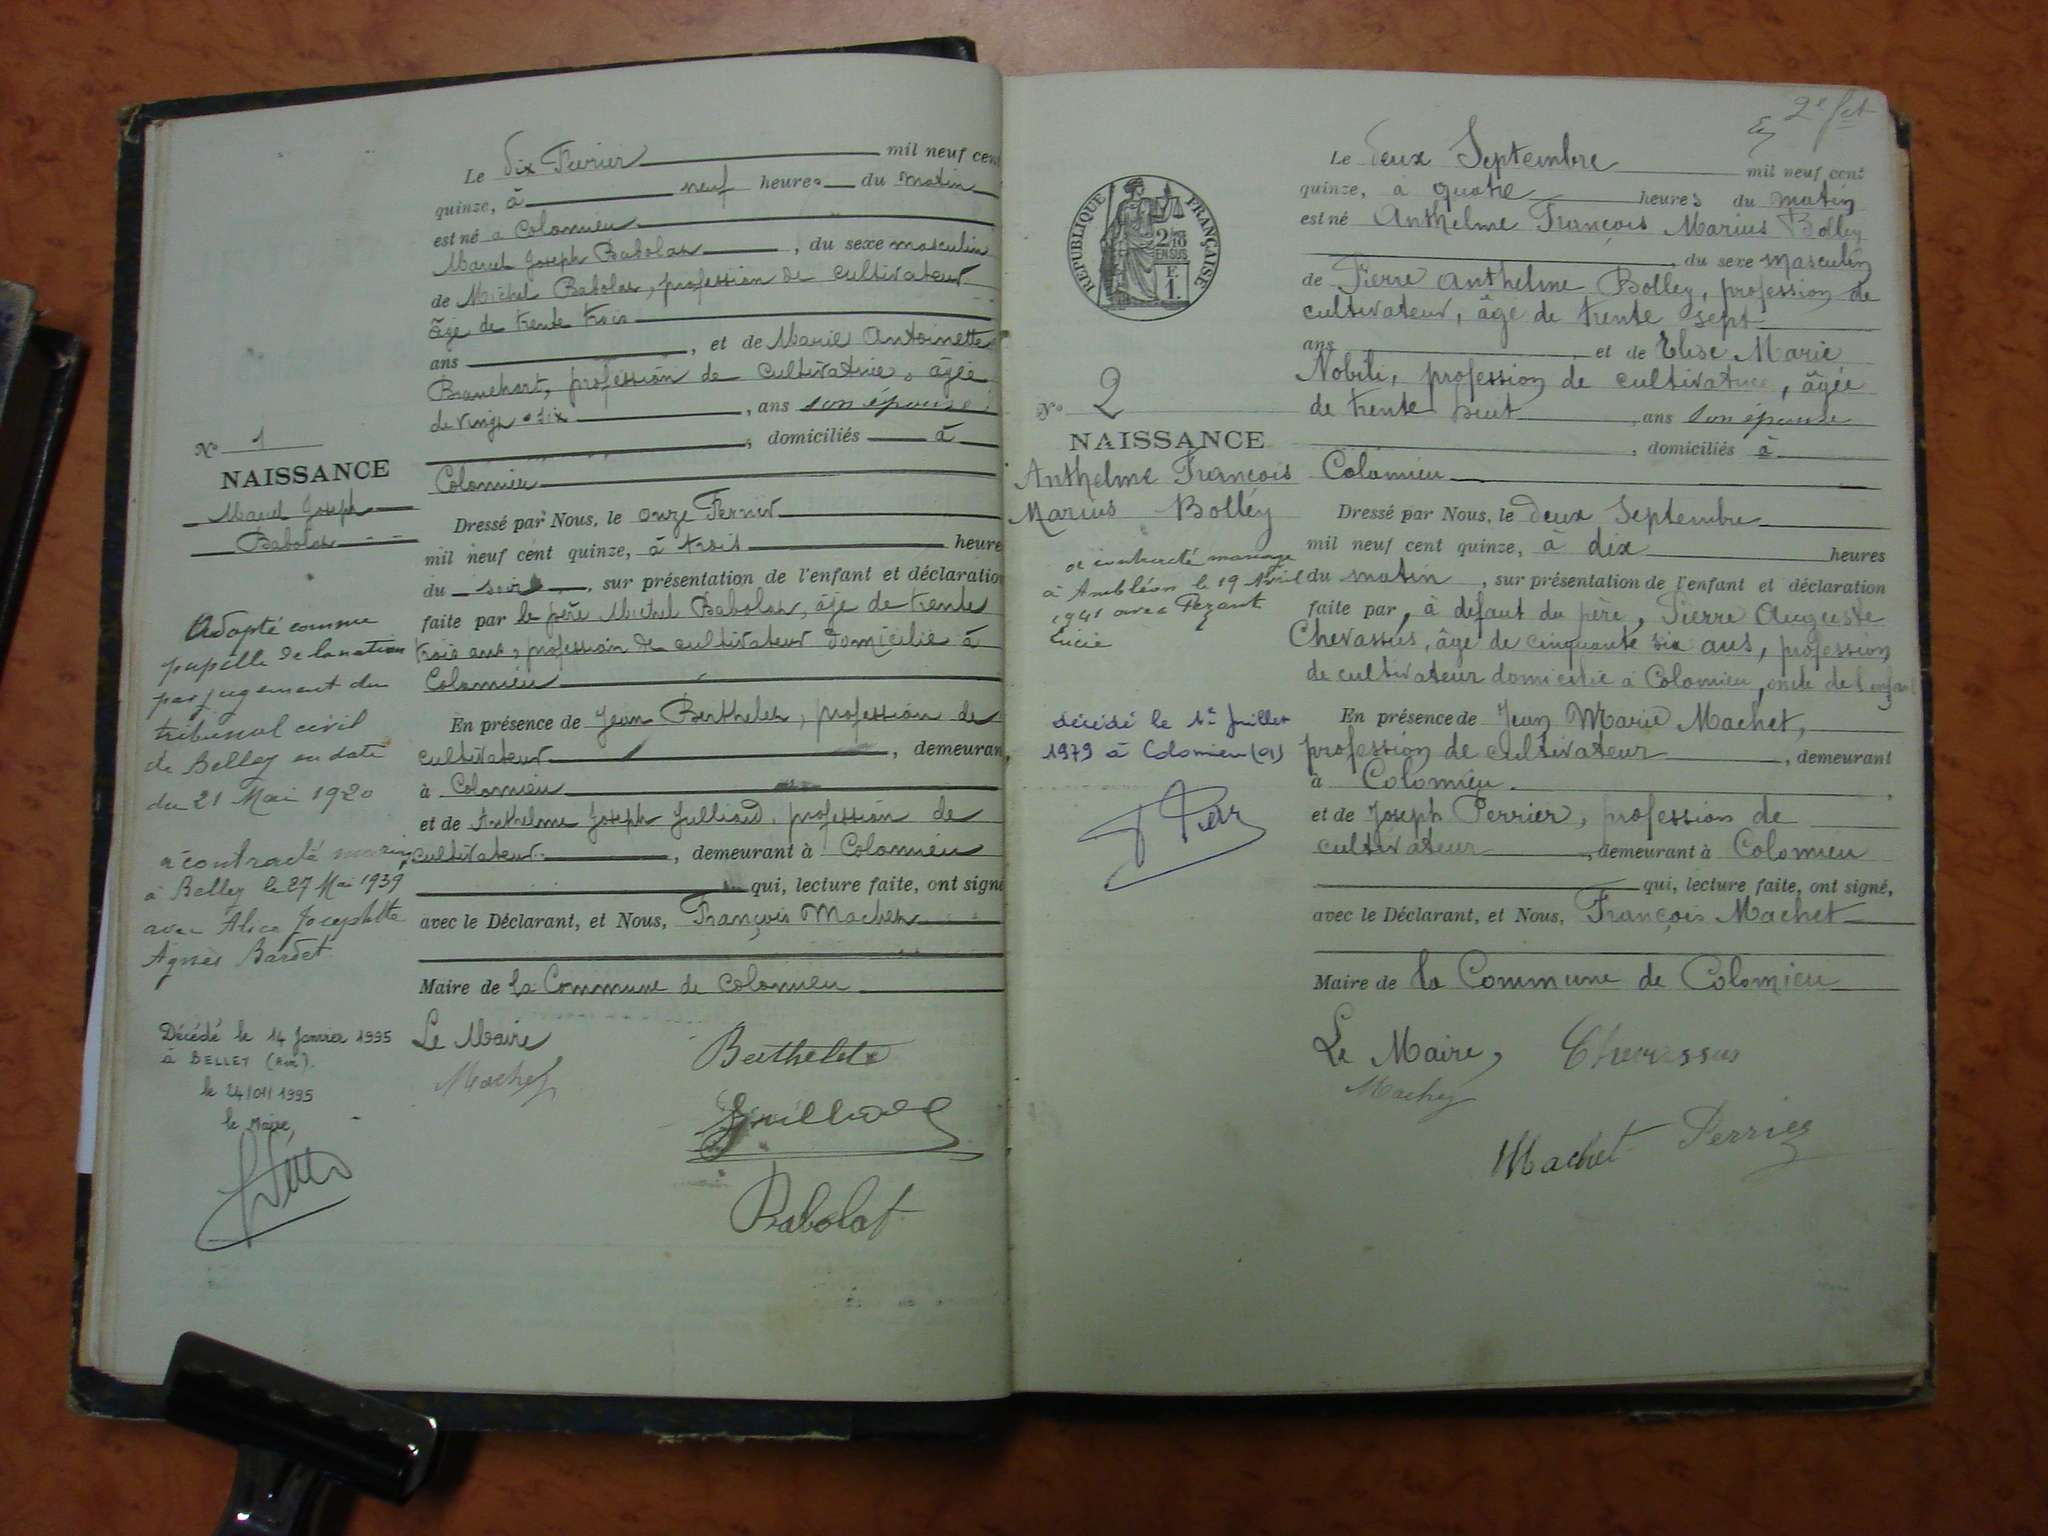 Le dix Fevrier mil neuf cent
quinze, à neuf heures du matin
est né à Colomieu
Marcel Joseph Babolat, du sexe masculin
de Michel Babolat, profession de cultivateur
âgé de trente trois
ans, et de Marie Antoinette
profession de cultivatrice, âgée
de vingt dix, ans son épouse
, domiciliés à
Colomieu
Dressé par Nous, le onze Fevrier
mil neuf cent quinze, à trois heure
du soir, sur présentation de l'enfant et déclaration
faite par le père Michel Babolat, âgé de trente
trois ans, profession de cultivateur domicilié à
Colomieu
En présence de Jean Berthelet, profession de
cultivateur, demeurant
à Colomieu
et de Anthelme Joseph Juilliard, profession de
cultivateur, demeurant à Colomieu
qui, lecture faite, ont signé
avec le Déclarant, et Nous, François Machet
Maire de la Commune de Colomieu
Le Maire
Machet
Berthelet
Juilliard
Babolat
No 1
NAISSANCE
Marcel Joseph
Babolat
Adopté comme
pupille de la nation
par jugement du
tribunal civil
de Belley en date
du 21 Mai 1920
a contracté mariage
à Belley le 27 Mai 1939
avec Alice Josephte
Agnès Bardet
Décédé le 14 Janvier 1995
à BELLEY (Ain).
le 24/01/1995
le Maire,
2e fet
RÉPUBLIQUE FRANÇAISE
2/10
EN SUS
F.
1.
No 2
NAISSANCE
Anthelme François
Marius Bolley
a contracté mariage
à Ambléon le 19 Avril
1941 avec Pezant
Lucie
décédé le 1er Juillet
1979 à Colomieu (01)
Le deux Septembre mil neuf cent
quinze, à quatre heures du matin
est né Anthelme François Marius Bolley
, du sexe masculin
de Pierre Anthelme Bolley, profession de
cultivateur, âgé de trente sept
ans et de Elise Marie
Nobili, profession de cultivatrice, âgée
de trente huit, ans son épouse
, domiciliés à
Colomieu
Dressé par Nous, le deux Septembre
mil neuf cent quinze, à dix heures
du matin, sur présentation de l'enfant et déclaration
faite par, à défaut du père, Pierre Auguste
Chevassus, âgé de cinquante six ans, profession
de cultivateur domicilié à Colomieu, oncle de l'enfant
En présence de Jean Marie Machet,
profession de cultivateur, demeurant
à Colomieu
et de Joseph Perrier, profession de
cultivateur, demeurant à Colomieu
qui, lecture faite, ont signé,
avec le Déclarant, et Nous, François Machet
Maire de la Commune de Colomieu
Le Maire, Chevassus
Machet
Machet Perrier